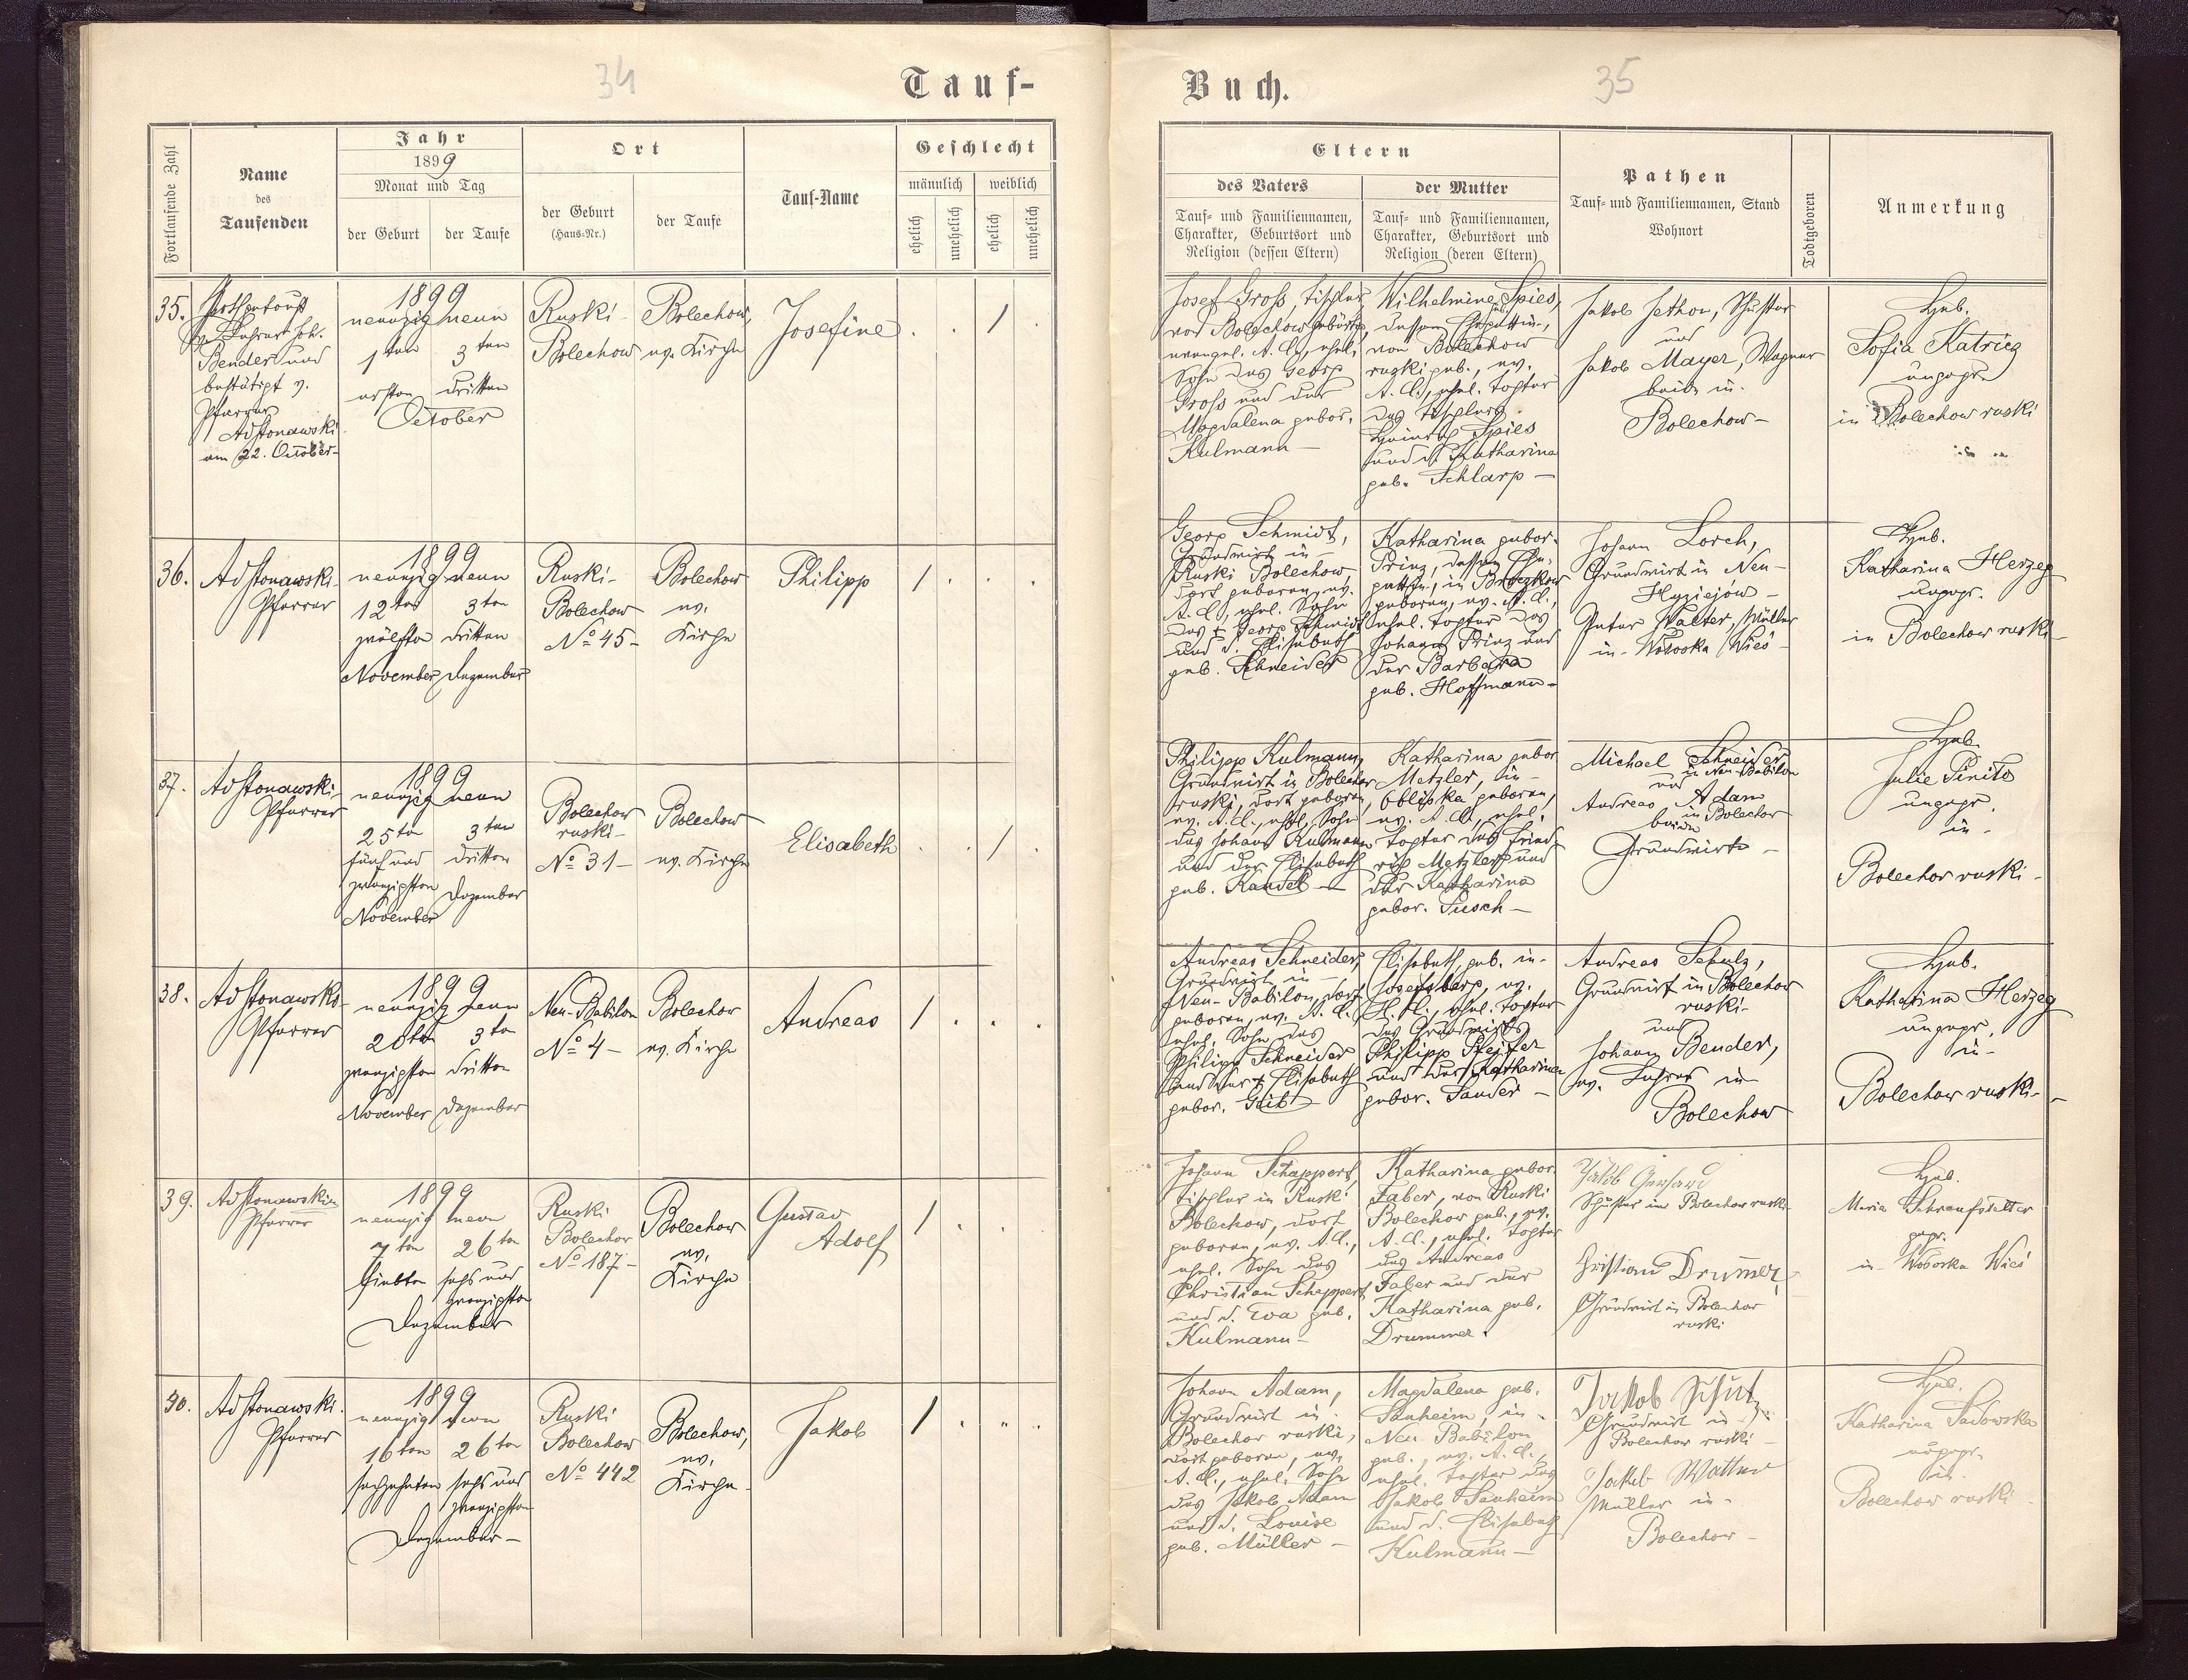 34
Tauf-
Fortlaufende Zahl
Name
des
Taufenden
Jahr
1899
Monat und Tag
der Geburt
der Taufe
Ort
der Geburt
(Haus-Nr.)
der Taufe
Tauf-Name
Geschlecht
männlich
weiblich
ehelich
unehelich
ehelich
unehelich
35.
Lehrer Joh.
Bender und
bestätigt v.
Pfarrer
Adstonawski
am 22. October-
1899
neunzig neun
1ten 3ten
ersten dritten
October
Ruski
Bolechow
Bolechow,
ev. Kirche
Josefine
. . / .
36.
Adstonawski
Pfarrer
1899
neunzig neun
12ten 3ten
zwölften dritten
November Dezember
Ruski-
Bolechow
No 45-
Bolechow
ev.
Kirche
Philipp
/ . . .
37.
Adstonawski
Pfarrer
1899
neunzig neun
25ten 3ten
fünf und dritten
zwanzigsten Dezember
November
Bolechow
ruski-
No 31-
Bolechow
ev. Kirche
Elisabeth
. . / .
38.
Adstonawski
Pfarrer
1899
neunzig neun
20ten 3ten
zwanzigsten dritten
November Dezember
Neu-Babilon
No 4-
Bolechow
ev. Kirche
Andreas
/ . . .
39.
Adstonawski
Pfarrer
1899
neunzig neun
7ten 26ten
siebten sechs und
zwanzigsten
Dezember
Ruski
Bolechow
No 187-
Bolechow
ev.
Kirche
Gustav
Adolf
/ . . .
40.
Adstonawski
Pfarrer
1899
neunzig neun
16ten 26ten
sechzehnten sechs und
zwanzigsten
Dezember-
Ruski
Bolechow
No 442
Bolechow,
ev.
Kirche-
Jakob
/ . . .
Buch.
35
Eltern
des Vaters
Tauf- und Familiennamen,
Charakter, Geburtsort und
Religion (dessen Eltern)
der Mutter
Tauf- und Familiennamen,
Charakter, Geburtsort und
Religion (deren Eltern)
Pathen
Tauf- und Familiennamen, Stand
Wohnort
Todtgeboren
Anmerkung
Josef Gross, Tischler,
von Bolechow gebürtig,
evangel. A. C., ehel.
Sohn des Georg
Gross und der
Magdalena gebor.
Kulmann-
Wilhelmine Spies,
dessen Ehegattin,
von Bolechow
ruski geb., ev.
A. C., ehel. Tochter
des Tischlers
Heinrich Spies
und d. Katharina
geb. Schlarp-
Jakob Jethon, Schuster
und
Jakob Mayer, Wagner
beide in
Bolechow-
Heb.
Sofia Katricz
ungepr.
in Bolechow ruski
Georg Schmidt,
Grundwirt in
Ruski Bolechow
dort geboren, ev.
A. C., ehel. Sohn
des † Georg Schmidt
und d. Elisabeth
geb. Schneider
Katharina gebor.
Prinz, dessen Ehe-
gattin, in Broczkow
geboren, ev. A. C.,
ehel. Tochter des
Johann Prinz und
der Barbara
geb. Hoffmann-
Johann Lorch,
Grundwirt in Neu-
Hyziejów-
Peter Walter, Müller
in Wołoska Wieś-
Heb.
Katharina Herzeg
ungepr.
in Bolechow ruski-
Philipp Kulmann,
Grundwirt in Bolechow
ruski, dort geboren,
ev. A. C., ehel. Sohn
des Johann Kulmann
und der Elisabeth
geb. Kandel-
Katharina gebor.
Metzler, in
Obliska geboren,
ev. A. C., ehel.
Tochter des Fried-
rich Metzler und
der Katharina
gebor. Pusch-
Michael Schneider
in Neu-Babilon
und
Andreas Adam
in Bolechow
beide
Grundwirte-
Heb.
Julie Pinito
ungepr.
in-
Bolechow ruski-
Andreas Schneider,
Grundwirt in
Neu-Babilon, dort
geboren, ev. A. C.
ehel. Sohn des
Philipp Schneider
und der † Elisabeth
gebor. Geib
Elisabeth, geb. in-
Josefsberg, ev.
H. C., ehel. Tochter
des Grundwirts
Philipp Pfeifer
und der Katharina
gebor. Sauder-
Andreas Schulz,
Grundwirt in Bolechow
ruski-
und
Johann Bender,
ev. Lehrer in
Bolechow
Heb.
Katharina Herzeg
ungepr.
in-
Bolechow ruski-
Johann Schappert,
Tischler in Ruski
Bolechow, dort
geboren, ev. A. C.,
ehel. Sohn des
Christian Schappert
und d. Eva geb.
Kulmann-
Katharina gebor.
Faber, von Ruski
Bolechow geb., ev.
A. C., ehel. Tochter
des Andreas
Faber und der
Katharina geb.
Drummer.
Jakob Gerhard
Schuster in Bolechow ruski
Christian Drum̅er,
Grundwirt in Bolechow
ruski
Heb.
Maria Schraufstetter
gepr.
in Wołoska Wieś
Johann Adam,
Grundwirt in
Bolechow ruski,
dort geboren, ev.
A. C., ehel. Sohn
des Jakob Adam
und d. Louise
geb. Müller-
Magdalena geb.
Sauheim, in
Neu Babilon
geb., ev. A. C.,
ehel. Tochter des
Jakob Sauheim
und d. Elisabeth
Kulmann-
Jakob Schutz
Grundwirt in
Bolechow ruski-
Jakob Walter
Müller in-
Bolechow-
Heb.
Katharina Sadowska
ungepr.
in
Bolechow ruski-